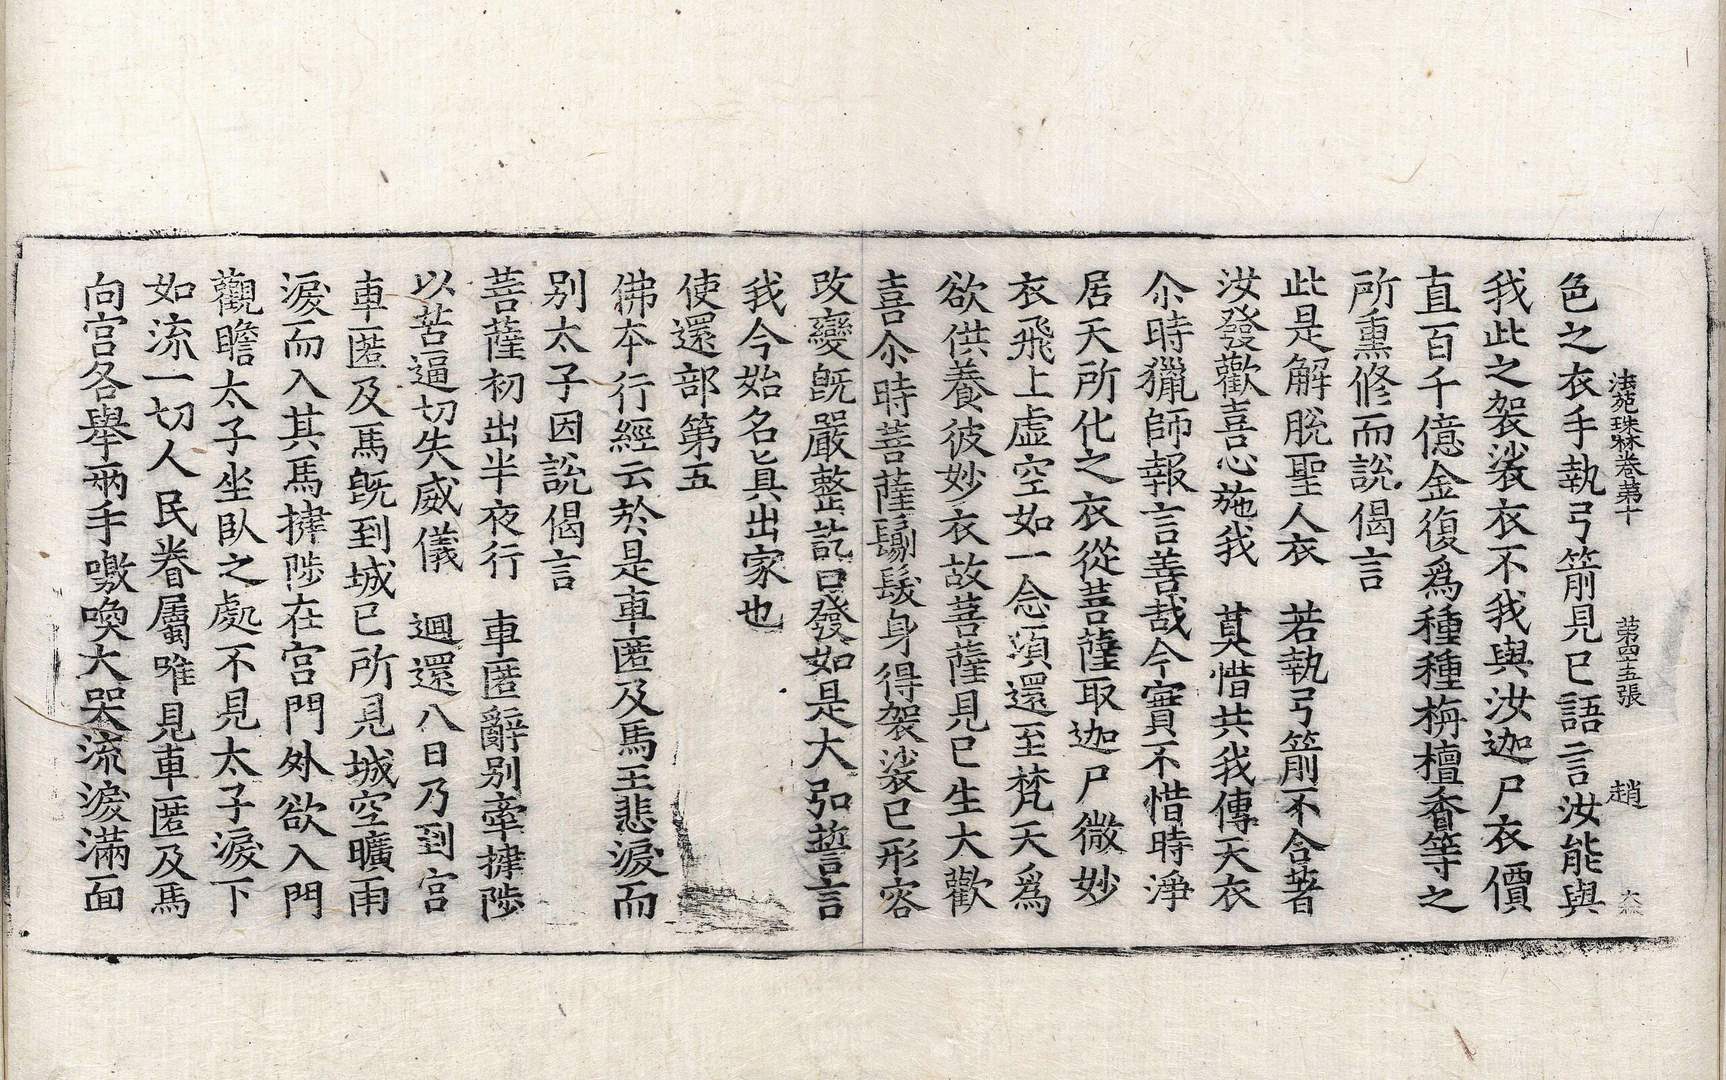 法苑珠林卷第十 第四十五張 趙
色之衣手執弓箭見已語言汝能與
我此之袈裟衣不我與汝迦尸衣價
直百千億金復爲種種栴檀香等之
所熏修而說偈言
此是解脫聖人衣 若執弓箭不合著
汝發歡喜心施我 莫惜共我傳天衣
尒時獵師報言善哉今實不惜時淨
居天所化之衣從菩薩取迦尸微妙
衣飛上虛空如一念頃還至梵天爲
欲供養彼妙衣故菩薩見已生大歡
喜尒時菩薩鬀髮身得袈裟已形容
改變旣嚴整訖口發如是大弘誓言
我今始名眞出家也
使還部第五
佛本行經云於是車匿及馬王悲淚而
別太子因說偈言
菩薩初出半夜行 車匿辭別牽揵陟
以苦逼切失威儀 迴還八日乃到宮
車匿及馬旣到城已所見城空曠甫
淚而入其馬揵陟在宮門外欲入門
觀瞻太子坐臥之處不見太子淚下
如流一切人民眷屬唯見車匿及馬
向宮各舉兩手噭喚大哭流淚滿面